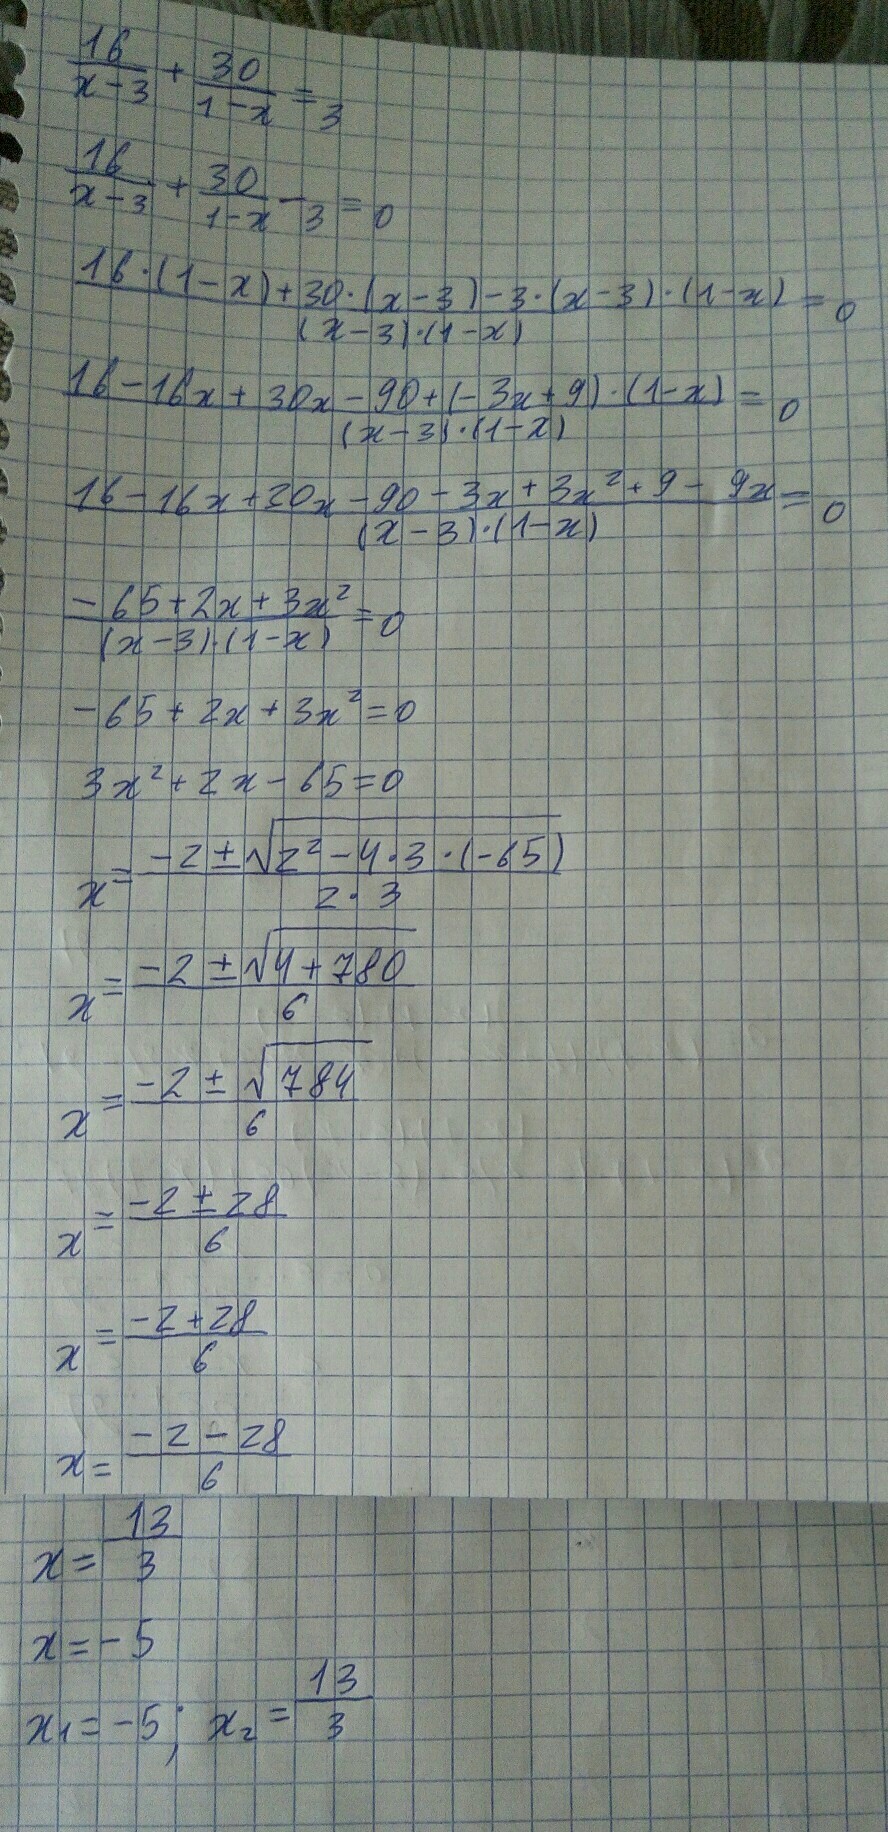 16/(x-3) + 30/(1-x) = 3
16/(x-3) + 30/(1-x) - 3 = 0
(16·(1-x)+30·(x-3)-3·(x-3)·(1-x))/((x-3)·(1-x)) = 0
(16-16x+30x-90+(-3x+9)·(1-x))/((x-3)·(1-x)) = 0
(16-16x+30x-90-3x+3x²+9-9x)/((x-3)·(1-x)) = 0
(-65+2x+3x²)/((x-3)·(1-x)) = 0
-65+2x+3x²=0
3x²+2x-65=0
x = (-2±√(2²-4·3·(-65)))/(2·3)
x = (-2±√(4+780))/6
x = (-2±√784)/6
x = (-2±28)/6
x = (-2+28)/6
x = (-2-28)/6
x = 13/3
x = -5
x₁ = -5; x₂ = 13/3